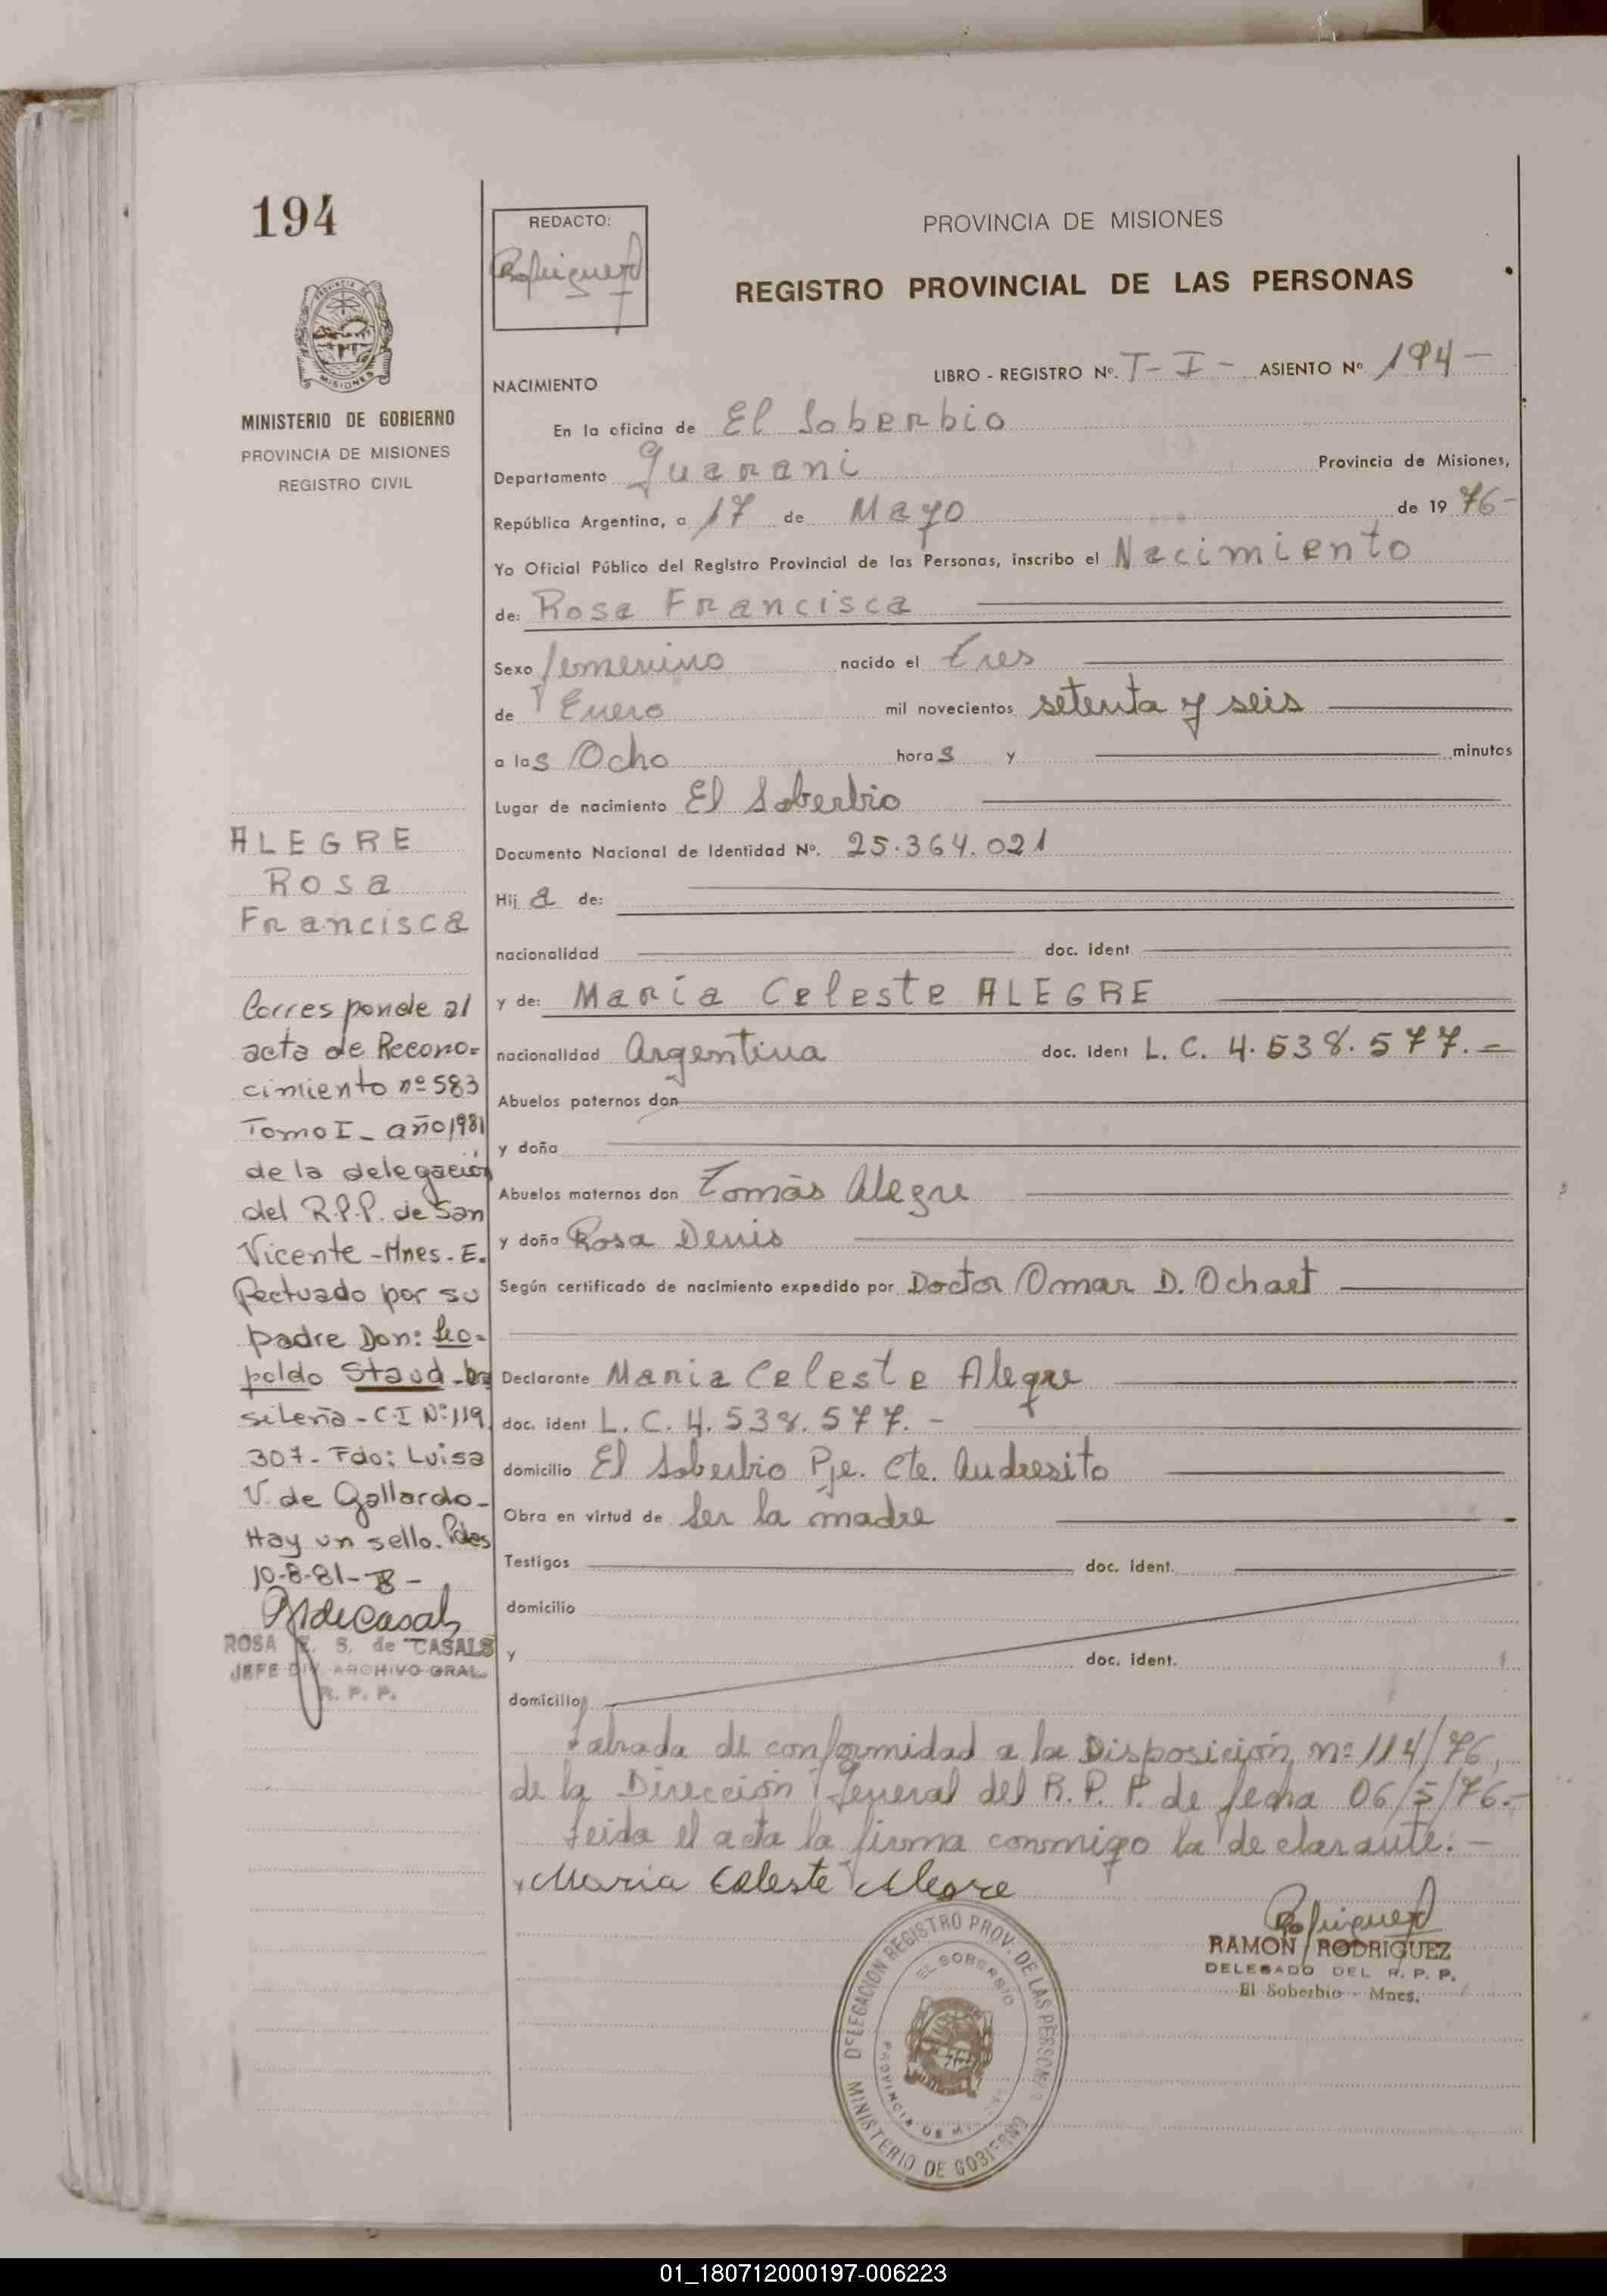 194
MINISTERIO DE GOBIERNO
PROVINCIA DE MISIONES
REGISTRO CIVIL
ALEGRE
Rosa
Francisca
Corresponde al
acta de Recono=
cimiento nº 583
Tomo I_ año 1981
de la delegación
del R.P.P. de San
Vicente - Mnes - E.
fectuado por su
padre Don: Leo=
poldo Staud - bra
sileña - C.I Nº: 119.
307 - Fdo: Luisa
V. de Gallardo -
Hay un sello. Pdas
10-8-81-
ROSA E. S. de CASALS
JEFE DIV ARCHIVO GRAL.
R. P. P.
REDACTO:
PROVINCIA DE MISIONES
REGISTRO PROVINCIAL DE LAS PERSONAS
LIBRO - REGISTRO Nº. T - I - ASIENTO Nº 194 -
NACIMIENTO
En la oficina de El Soberbio
Departamento Guarani Provincia de Misiones,
República Argentina, a 17 de Mayo de 19 76-
Yo Oficial Público del Registro Provincial de las Personas, inscribo el Nacimiento
de: Rosa Francisca
Sexo femenino nacido el tres
de Enero mil novecientos setenta y seis
a las Ocho horas y minutos
Lugar de nacimiento El Soberbio
Documento Nacional de Identidad Nº. 25.364.021
Hij a de:
nacionalidad doc. ident
y de: Maria Celeste ALEGRE
nacionalidad Argentina doc. ident L. C. 4.538.577.=
Abuelos paternos don
y doña
Abuelos maternos don Tomás Alegre
y doña Rosa Denis
Según certificado de nacimiento expedido por Doctor Omar D. Ochaet
Declarante Maria Celeste Alegre
doc. ident L. C. 4.538.577.-
domicilio El Soberbio Pje. Cte. Andresito
Obra en virtud de Ser la madre
Testigos doc. ident.
domicilio
y doc. ident.
domicilio
Labrada de conformidad a la Disposición nº 114/76,
de la Dirección General del R. P. P. de fecha 06/5/76.-
Leida el acta la firma conmigo la declarante.-
Maria Celeste Alegre
RAMON RODRIGUEZ
DELEGADO DEL R. P. P.
El Soberbio - Mnes.
DELEGACION REGISTRO PROV. DE LAS PERSONAS
EL SOBERBIO
PROVINCIA DE MISIONES
MINISTERIO DE GOBIERNO
01_180712000197-006223